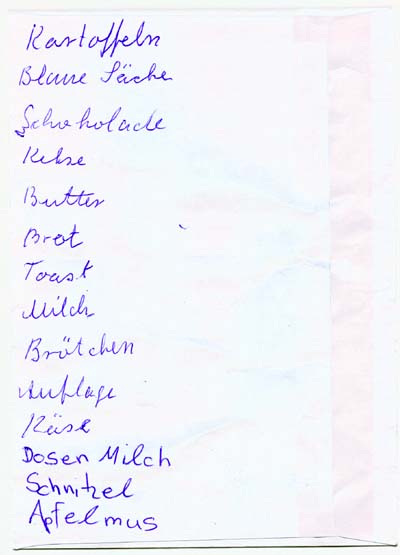 Kartoffeln
Blaue Säcke
Schokolade
Kekse
Butter
Brot
Toast
Milch
Brötchen
Auflage
Käse
Dosen Milch
Schnitzel
Apfelmus